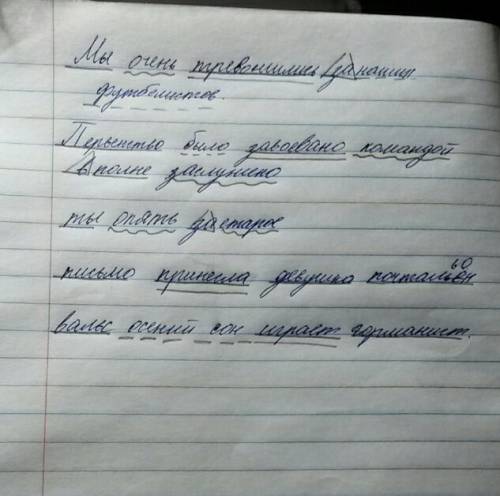 Мы очень тревожились за наших
футболистов.
Первенство было завоевано командой
вполне заслужено
ты опять за старое
письмо принесла девушка почтальон
вальс осений сон играет гормонист.